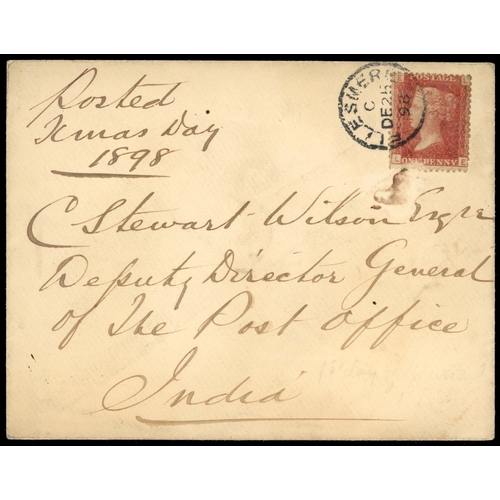 Posted
Xmas Day
1898
ELLESMERE
C
DE 25
98
POSTAGE
ONE PENNY
L E
C Stewart-Wilson Esqre
Deputy Director General
of The Post Office
India